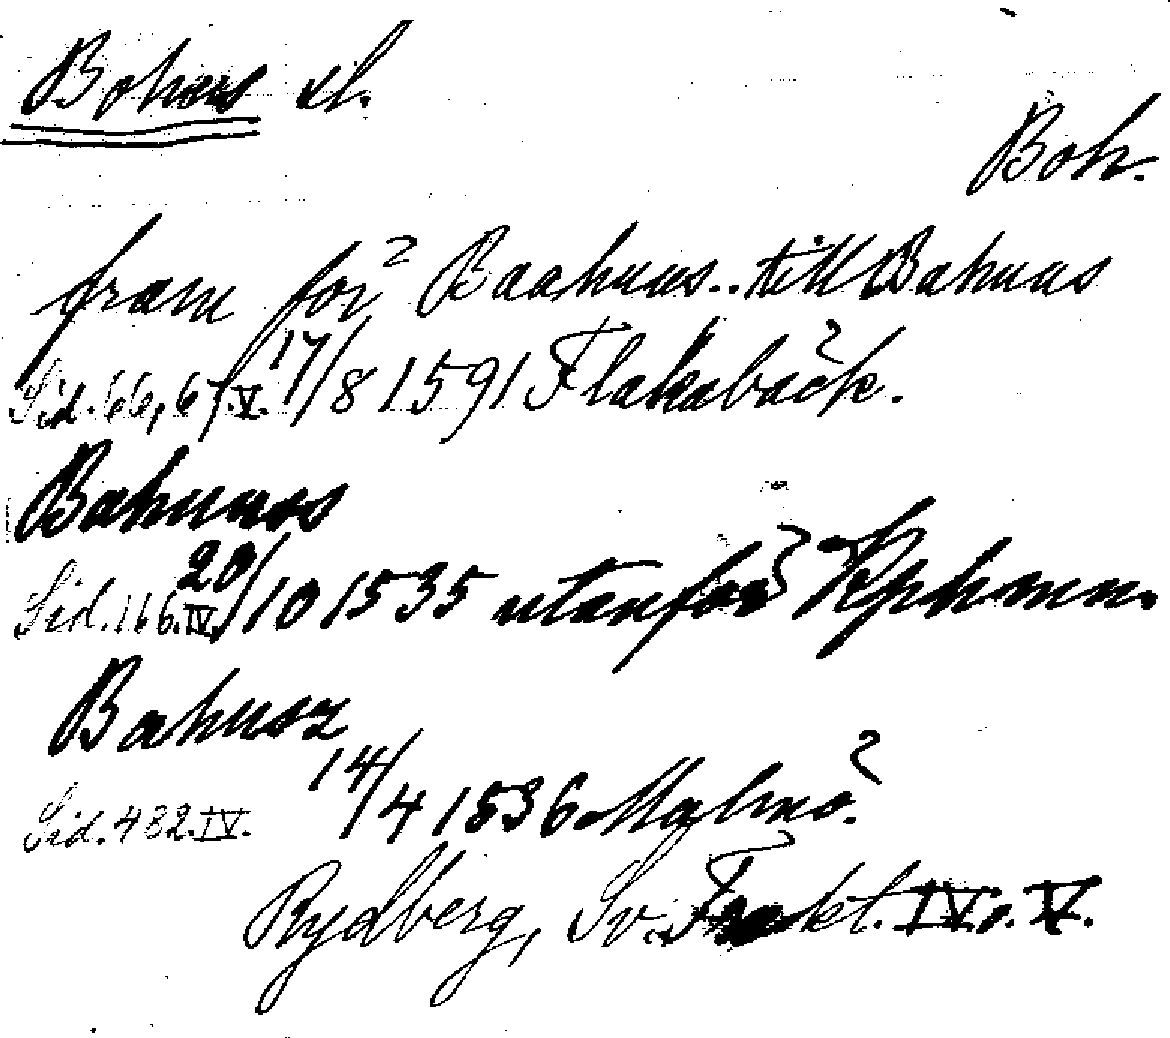 Bohus sl.
Boh.
fram för Baahuus.. till Bahuus
Sid. 66, 67.V. 17/8 1591 Flakabäck.
Bahuuss
Sid. 166.IV. 20/10 1535 utanför Kphamn.
Bahusz
Sid. 432.IV. 14/4 1536 Malmö.
Rydberg, Sv. Trakt. IV o. V.